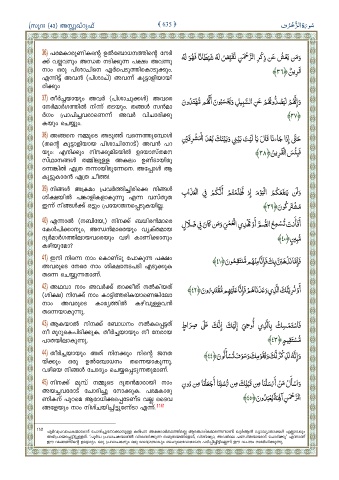 [സൂറഃ (43) അസ്സുഖ്റുഫ് 635 سُورَةُ الزُّخْرُف
36) പരമകാരുണികന്റെ ഉൽബോധനത്തിന്റെ നേർ
ക്ക് വല്ലവനും അന്ധത നടിക്കുന്ന പക്ഷം അവന്നു
നാം ഒരു പിശാചിനെ ഏർപെടുത്തികൊടുക്കും.
എന്നിട്ട് അവൻ (പിശാച്) അവന്ന് കൂട്ടാളിയായി
രിക്കും
وَمَن يَعْشُ عَن ذِكْرِ الرَّحْمَٰنِ نُقَيِّضْ لَهُ شَيْطَانًا فَهُوَ لَهُ
قَرِينٌ ﴿٣٦﴾
37) തീർച്ചയായും അവർ (പിശാചുക്കൾ) അവരെ
നേർമാർഗത്തിൽ നിന്ന് തടയും. തങ്ങൾ സൻമാ
ർഗം പ്രാപിച്ചവരാണെന്ന് അവർ വിചാരിക്കു
കയും ചെയ്യും.
وَإِنَّهُمْ لَيَصُدُّونَهُمْ عَنِ السَّبِيلِ وَيَحْسَبُونَ أَنَّهُم مُّهْتَدُونَ
﴿٣٧﴾
38) അങ്ങനെ നമ്മുടെ അടുത്ത് വന്നെത്തുമ്പോൾ
(തന്റെ കൂട്ടാളിയായ പിശാചിനോട്) അവൻ പറ
യും: എനിക്കും നിനക്കുമിടയിൽ ഉദയാസ്തമന
സ്ഥാനങ്ങൾ തമ്മിലുള്ള അകലം ഉണ്ടായിരു
ന്നെങ്കിൽ എത്ര നന്നായിരുന്നേനെ. അപ്പോൾ ആ
കൂട്ടുകാരൻ എത്ര ചീത്ത!
حَتَّىٰ إِذَا جَاءَنَا قَالَ يَا لَيْتَ بَيْنِي وَبَيْنَكَ بُعْدَ الْمَشْرِقَيْنِ
فَبِئْسَ الْقَرِينُ ﴿٣٨﴾
39) നിങ്ങൾ അക്രമം പ്രവർത്തിച്ചിരിക്കെ നിങ്ങൾ
ശിക്ഷയിൽ പങ്കാളികളാകുന്നു എന്ന വസ്തുത
ഇന്ന് നിങ്ങൾക്ക് ഒട്ടും പ്രയോജനപ്പെടുകയില്ല.
وَلَن يَنفَعَكُمُ الْيَوْمَ إِذ ظَّلَمْتُمْ أَنَّكُمْ فِي الْعَذَابِ
مُشْتَرِكُونَ ﴿٣٩﴾
40) എന്നാൽ (നബിയേ,) നിനക്ക് ബധിരൻമാരെ
കേൾപിക്കാനും, അന്ധൻമാരെയും വ്യക്തമായ
ദുർമാർഗത്തിലായവരെയും വഴി കാണിക്കാനും
കഴിയുമോ?
أَفَأَنتَ تُسْمِعُ الصُّمَّ أَوْ تَهْدِي الْعُمْيَ وَمَن كَانَ فِي ضَلَالٍ
مُّبِينٍ ﴿٤٠﴾
41) ഇനി നിന്നെ നാം കൊണ്ടു പോകുന്ന പക്ഷം
അവരുടെ നേരെ നാം ശിക്ഷാനടപടി എടുക്കുക
തന്നെ ചെയ്യുന്നതാണ്.
فَإِمَّا نَذْهَبَنَّ بِكَ فَإِنَّا مِنْهُم مُّنتَقِمُونَ ﴿٤١﴾
42) അഥവാ നാം അവർക്ക് താക്കീത് നൽകിയത്
(ശിക്ഷ) നിനക്ക് നാം കാട്ടിത്തരികയാണെങ്കിലോ
നാം അവരുടെ കാര്യത്തിൽ കഴിവുള്ളവൻ
തന്നെയാകുന്നു.
أَوْ نُرِيَنَّكَ الَّذِي وَعَدْنَاهُمْ فَإِنَّا عَلَيْهِم مُّقْتَدِرُونَ ﴿٤٢﴾
43) ആകയാൽ നിനക്ക് ബോധനം നൽകപ്പെട്ടത്
നീ മുറുകെപിടിക്കുക, തീർച്ചയായും നീ നേരായ
പാതയിലാകുന്നു.
فَاسْتَمْسِكْ بِالَّذِي أُوحِيَ إِلَيْكَ إِنَّكَ عَلَىٰ صِرَاطٍ
مُّسْتَقِيمٍ ﴿٤٣﴾
44) തീർച്ചയായും അത് നിനക്കും നിന്റെ ജനത
യ്ക്കും ഒരു ഉൽബോധനം തന്നെയാകുന്നു.
വഴിയെ നിങ്ങൾ ചോദ്യം ചെയ്യപ്പെടുന്നതുമാണ്.
وَإِنَّهُ لَذِكْرٌ لَّكَ وَلِقَوْمِكَ وَسَوْفَ تُسْأَلُونَ ﴿٤٤﴾
45) നിനക്ക് മുമ്പ് നമ്മുടെ ദൂതൻമാരായി നാം
അയച്ചവരോട് ചോദിച്ചു നോക്കുക. പരമകാരു
ണികന് പുറമെ ആരാധിക്കപ്പെടേണ്ട വല്ല ദൈവ
ങ്ങളേയും നാം നിശ്ചയിച്ചിട്ടുണ്ടോ എന്ന്.
وَاسْأَلْ مَنْ أَرْسَلْنَا مِن قَبْلِكَ مِن رُّسُلِنَا أَجَعَلْنَا مِن دُونِ
الرَّحْمَٰنِ آلِهَةً يُعْبَدُونَ ﴿٤٥﴾